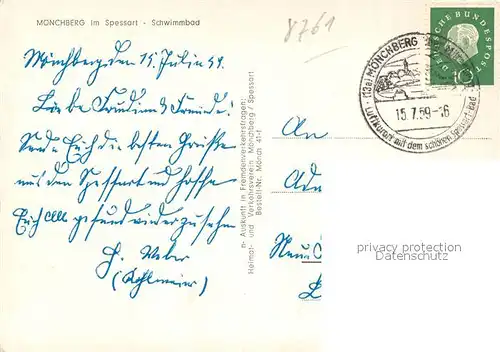 MÖNCHBERG im Spessart - Schwimmbad
8761
Mönchberg, den 15. Julie 59.
Liebe Freudin & Freunde!
Sende Euch die besten Grüße
aus dem Spessart und hoffe
Euch alle gesund wieder zu sehen
H. Weber
n- Auskunft in Fremdenverkehrsfragen:
Heimat- und Verkehrsverein Mönchberg / Spessart
Bestell-Nr. Mönch 41-f
(13a) MÖNCHBERG
15.7.59-16
Luftkurort mit dem schönen Spessart-Bad
SCHE BUNDESPOST
10
An
An
privacy protection
Datenschutz
Neu